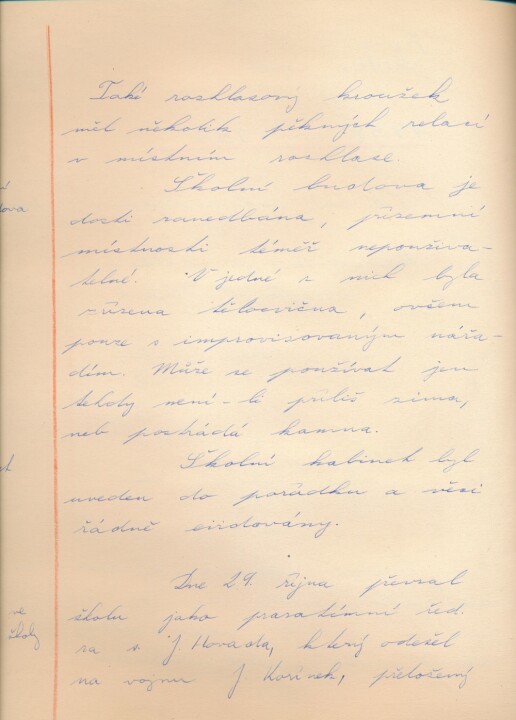 Také rozhlasový kroužek
měl několik pěkných relací
v místním rozhlase.
Školní budova je
dosti zanedbána, přízemní
místnosti téměř nepoužíva-
telné. V jedné z nich byla
zřízena tělocvična, ovšem
pouze s improvisovaným nářa-
dím. Může se používat jen
tehdy není-li příliš zima,
neb postrádá kamna.
Školní kabinet byl
uveden do pořádku a věci
řádně eiidovány.
Dne 29. října převzal
školu jako prozatímní řed.
za v J Hovada, který odešel
na vojnu J Kořínek, přeložený
ve
školy